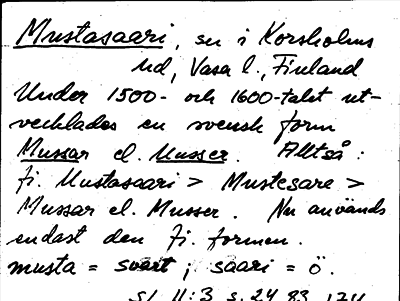 Mustasaari, su i Korsholms
hd, Vasa l., Finland
Under 1500- och 1600-talet ut-
vecklades en svensk form
Mussar el. Musser. Alltså:
fi. Mustasaari > Mustesare >
Mussar el. Musser. Nu används
endast den fi. formen.
musta = svart ; saari = ö.
sl II:3 s. 24, 83, 124